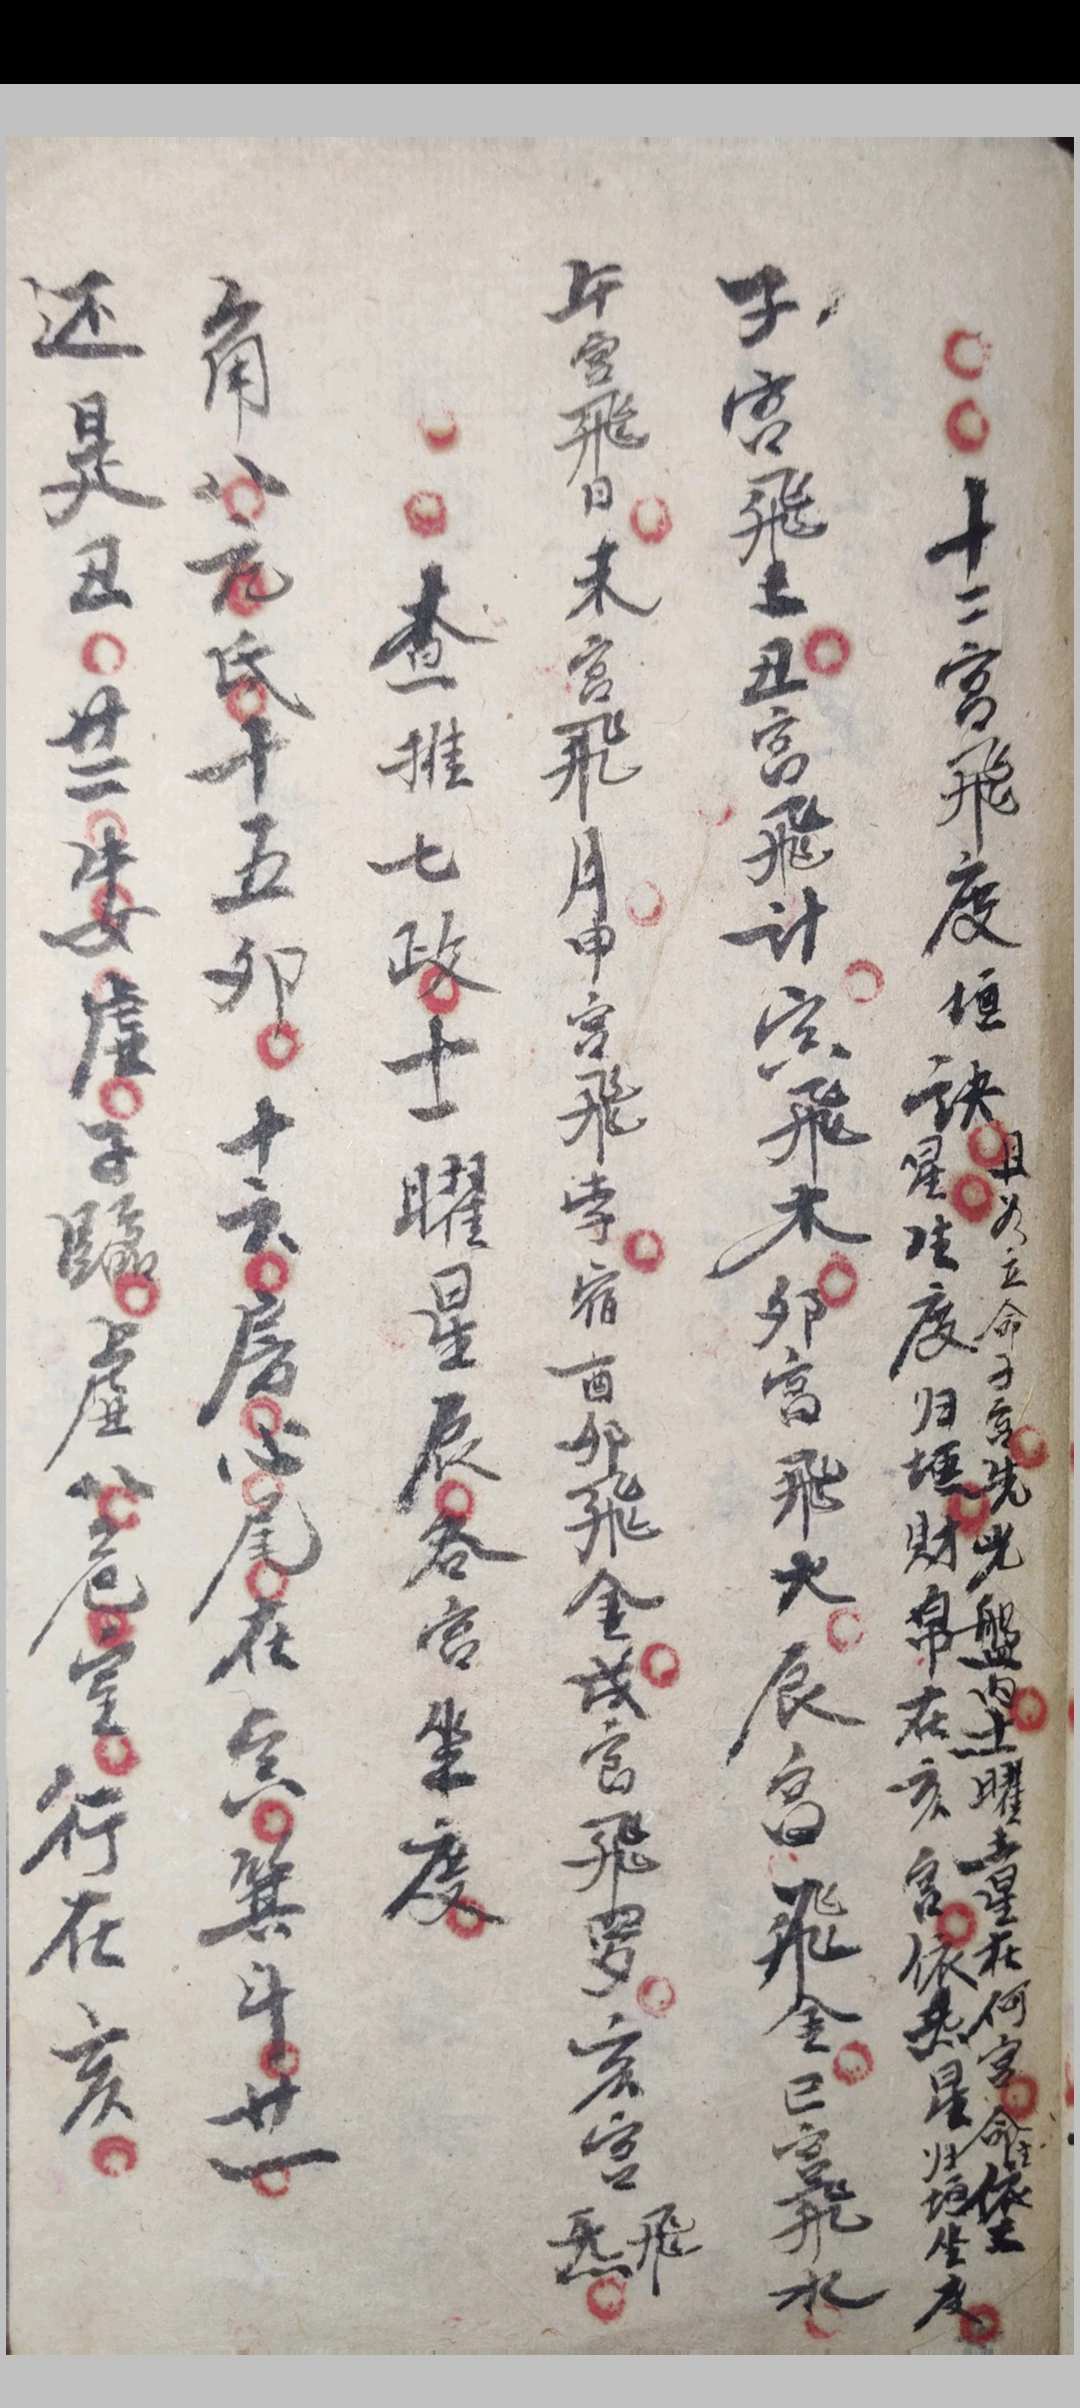 十二宮飛度垣訣
且如立命子宮先光盤内土曜土星在何宮命主依土
星坐度归垣財帛在亥宮依炁星归垣坐度
子宮飛土丑宮飛计寅飛木卯宮飛火辰宮飛金巳宮飛水
午宮飛日未宮飛月申宮飛孛宿酉卯飛金戌宮飛罗亥宮飛炁
查推七政十一曜星辰各宮坐度
角八亢氐十五卯十六房心尾在寅箕斗廿一
还是丑廿二牛女虛子臨虛八危室行在亥